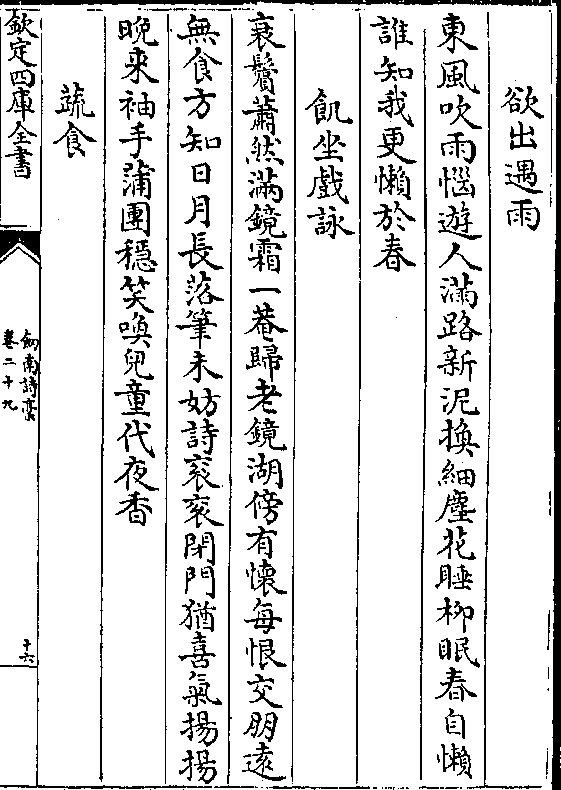 欲出遇雨
東風吹雨惱遊人滿路新泥換細塵花睡柳眠春自懶
誰知我更懶於春
飢坐戲詠
衰鬢蕭然滿鏡霜一菴歸老鏡湖傍有懷每恨交朋遠
無食方知日月長落筆未妨詩衮衮閉門猶喜氣揚揚
晚来袖手蒲團穩笑喚兒童代夜香
蔬食
欽定四庫全書
劒南詩槀
卷二十九
十六